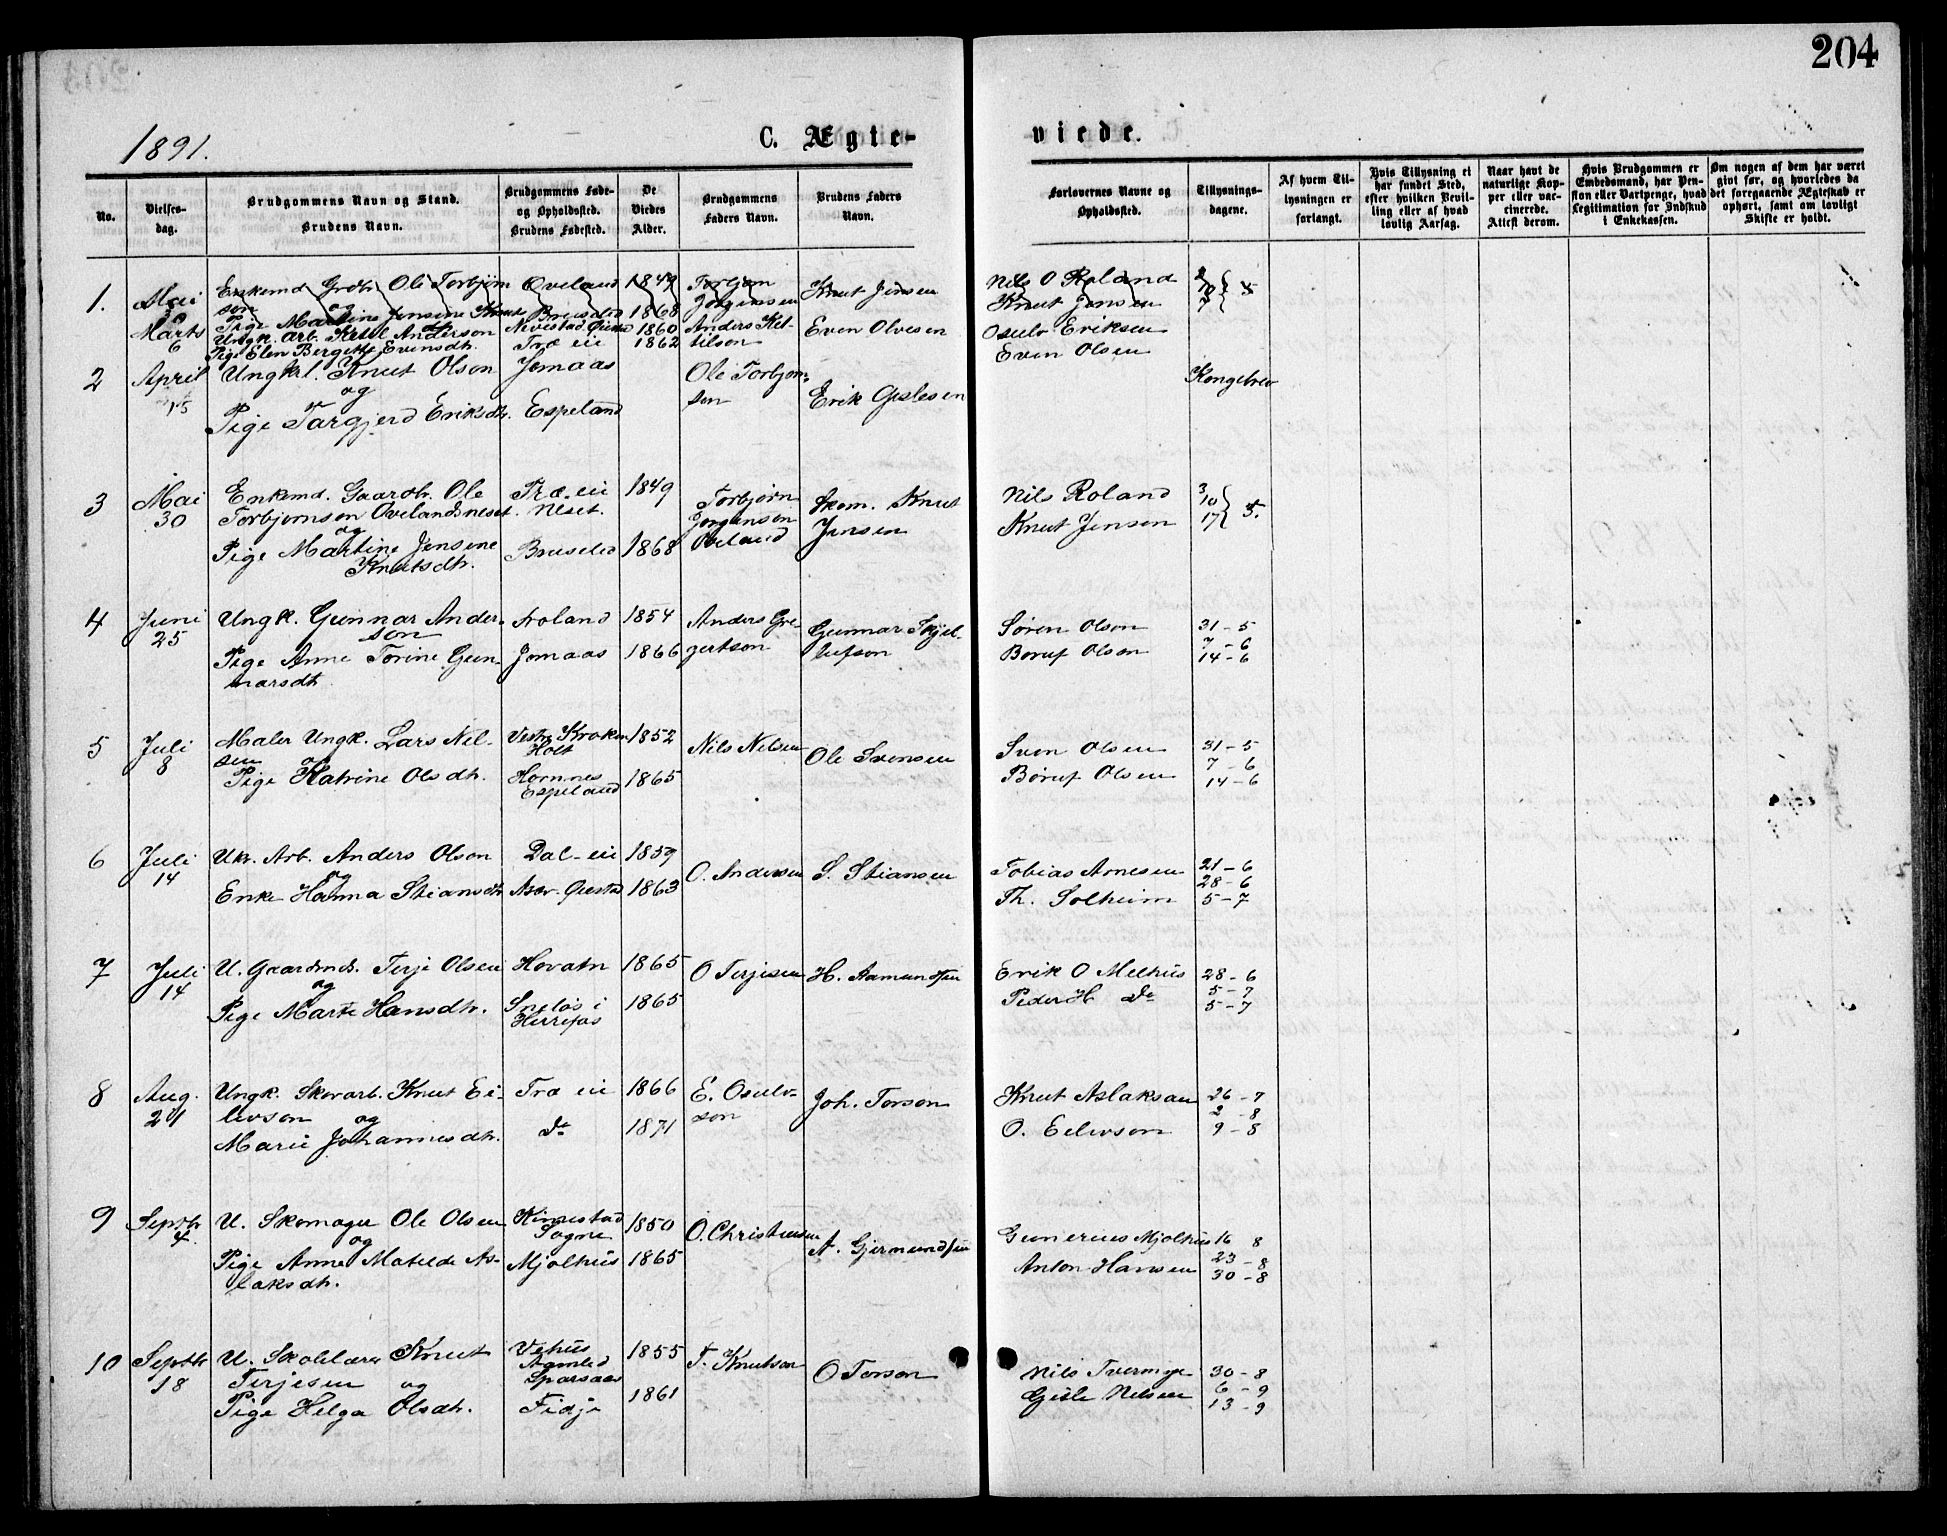 204
1891.
C. Ægte-
viede.
No.
Vielses-
dag.
Brudgommens Navn og Stand.
Brudens Navn.
Brudgommens Føde-
og Opholdssted.
Brudens Fødested.
De
Viedes
Alder.
Brudgommens
Faders Navn.
Brudens Faders
Navn.
Forlovernes Navne og
Opholdssted.
Tillysnings-
dagene.
Af hvem Til-
lysningen er
forlangt.
Hvis Tillysning ei
har fundet Sted,
efter hvilken Bevil-
ling eller af hvad
lovlig Aarsag.
Naar havt de
naturlige Kop-
per eller vac-
cinerede.
Attest derom.
Hvis Brudgommen er
Embedsmand, har Pen-
sion eller Vartpenge, hvad
Legitimation for Indskud
i Enkekassen.
Om nogen af dem har været
givt før, og hvorledes da
det foregaaende Ægteskab er
ophørt, samt om lovligt
Skifte er holdt.
1.
Mai
Enkemd Grdbr. Ole Torbjørn
son og
Pige Martine Jensine Knuts
Oveland
Bruseled
1849
1868
Torbjørn
Jørgensen
Knut Jensen
Nils O Roland
Knut Jensen
Marts
6
Ungk. Arb. Ketil Anderson
Pige Elen Bergitte Evensdh.
Træ eie
1860
1862
Anders Ket-
tilson
Even Olvesen
Osulv Eriksen
Even Olsen
2
April
15
Ungkrl. Knut Olson
og
Pige Targjerd Eriksdh.
Jomaas
Espeland
Ole Torbjørn-
son
Erik Gislesen
Kongebrev
3
Mai
30
Enkemd. Gaardbr. Ole
Torbjørnson Ovelandsneset
og
Pige Martine Jensine
Knutsdh.
Træ-eie
Neset.
Bruseled
1849
1868
Torbjørn
Jørgensen
Oveland
Skom. Knut
Jensen
Nils Roland
Knut Jensen
3
10
17 } 5.
4
Juni
25
Ungk. Gunnar Ander-
son
Pige Anne Torine Gun-
narsdh
Aoland
Jomaas
1854
1866
Anders Gre-
gertson
Gunnar Kjel-
lefson
Søren Olson
Boruf Olson
31-5
7-6
14-6
5
Juli
8
Maler Ungk. Lars Nel-
sen og
Pige Katrine Olsdh.
Vestre Kroken
Holt
Hornnes
Espeland
1852
1865
Nils Nelsen
Ole Svensen
Sven Olsen
Børuf Olsen
31-5
7-6
14-6
6
Juli
14
Ukr. Arb. Anders Olson
og
Enke Hanna Stiansdh
Dal-eie
1859
1863
O. Andersen
S. Stiansen
Tobias Arnesen
Th. Solheim
21-6
28-6
5-7
7
Juli
14
U. Gaardmd. Terje Olsen
og
Pige Marte Hansdh.
Hovatn
Sneløs i
Herrefos
1865
1865
O Terjesen
H. Aamundsen
Erik O Melhus
Peder H Do
28-6
5-7
5-7
8
Aug.
21
Ungk. Skovarb. Knut Ei-
levson og
Marie Johannesdh.
Træ eie
Do
1866
1871
E. Osulv-
son
Joh. Torson
Knut Aslaksen
O. Eilevson
26-7
2-8
9-8
9
Septbr
4
U. Skomager Ole Olsen
og
Pige Anne Matilde As-
laksdh.
Himestad
Sogne
Mjolhus
1850
1865
O. Christensen
A. Gjermundsen
Gunerius Mjolhus
Anton Hansen
16 8
23-8
30-8
10
Septbr
18
U. Skolelærer Knut
Terjesen og
Pige Helga Olsdh.
Vehus
Aamlid
Sparsaas
Fidje
1855
1861
T. Knutson
O Torson
Nils Tvermyr
Gisle Nelsen
30-8
6-9
13-9